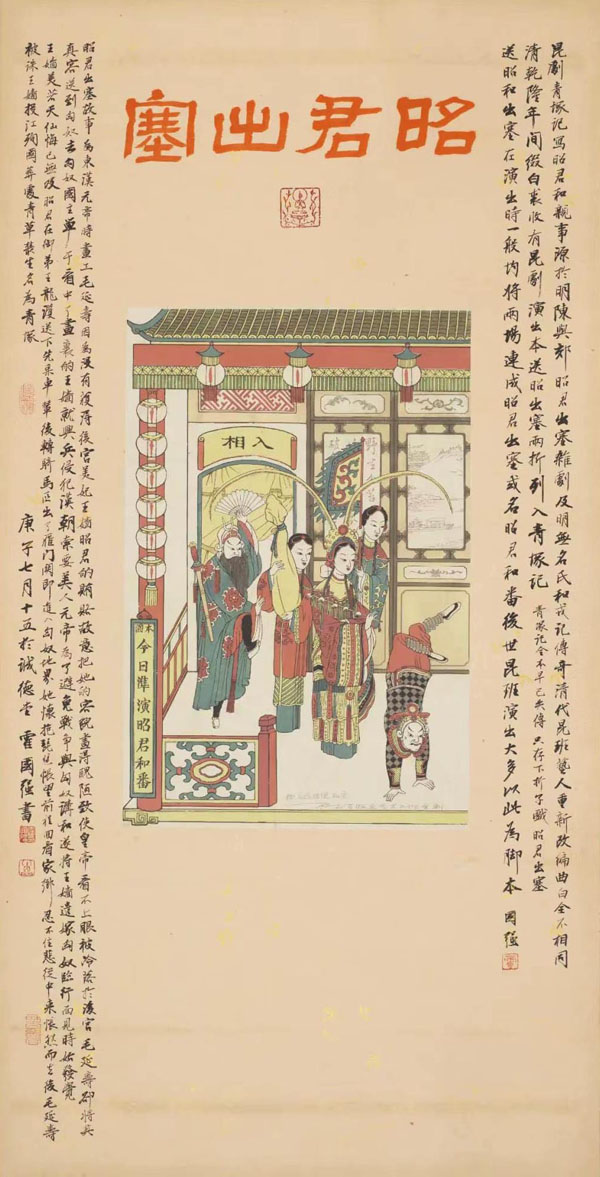 昭君出塞
昆劇青塚記寫昭君和親事源於明陳與郊昭君出塞雜劇及明無名氏和戎記傳奇清代昆班藝人重新改編曲白全不相同
清乾隆年間綴白裘收有昆劇演出本送昭出塞兩折列入青塚記
青塚記全本早已失傳只存下折子戲昭君出塞
送昭和出塞在演出時一般均將兩場連成昭君出塞或名昭君和番後世昆班演出大多以此為脚本 國強
入相
本園
今日準演昭君和番
昭君出塞故事為東漢元帝時畫工毛延壽因為沒有獲得後宮美妃王嬙昭君的賄賂故意把她的容貌畫得醜陋致使皇帝看不上眼被冷落於後宮毛延壽卻將其
真容送到匈奴去匈奴國主單于看中了畫裏的王嬙就興兵侵犯漢朝索要美人元帝為了避免戰爭與匈奴講和遂將王嬙遠嫁匈奴臨行面見時始發覺
王嬙美若天仙悔已無及昭君在御弟王龍護送下先乘車輦後轉騎馬匹出了雁門關即進入匈奴地界她懷抱琵琶悵望前程回看家鄉忍不住悲從中來悵然而去後毛延壽
被誅王嬙投江殉國葬處青草叢生名為青塚
庚子七月十五於誠德堂 霍國強書